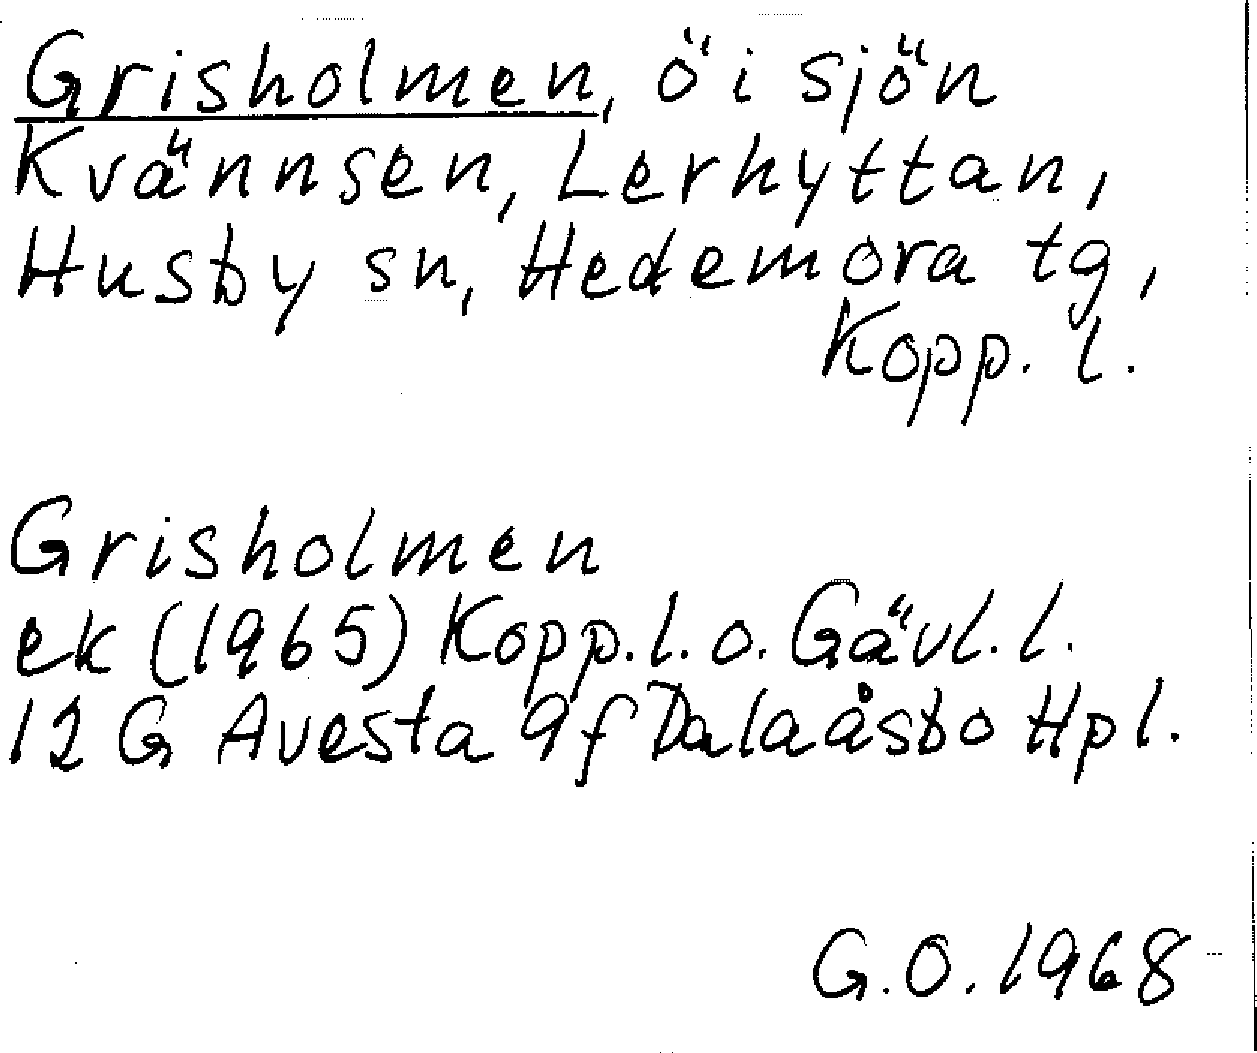 Grisholmen, ö i sjön
Kvännsen, Lerhyttan,
Husby sn, Hedemora tg,
Kopp. l.
Grisholmen
ek (1965) Kopp. l. o. Gävl. l.
12 G Avesta 9f Dalaåsbo Hpl.
G.O. 1968